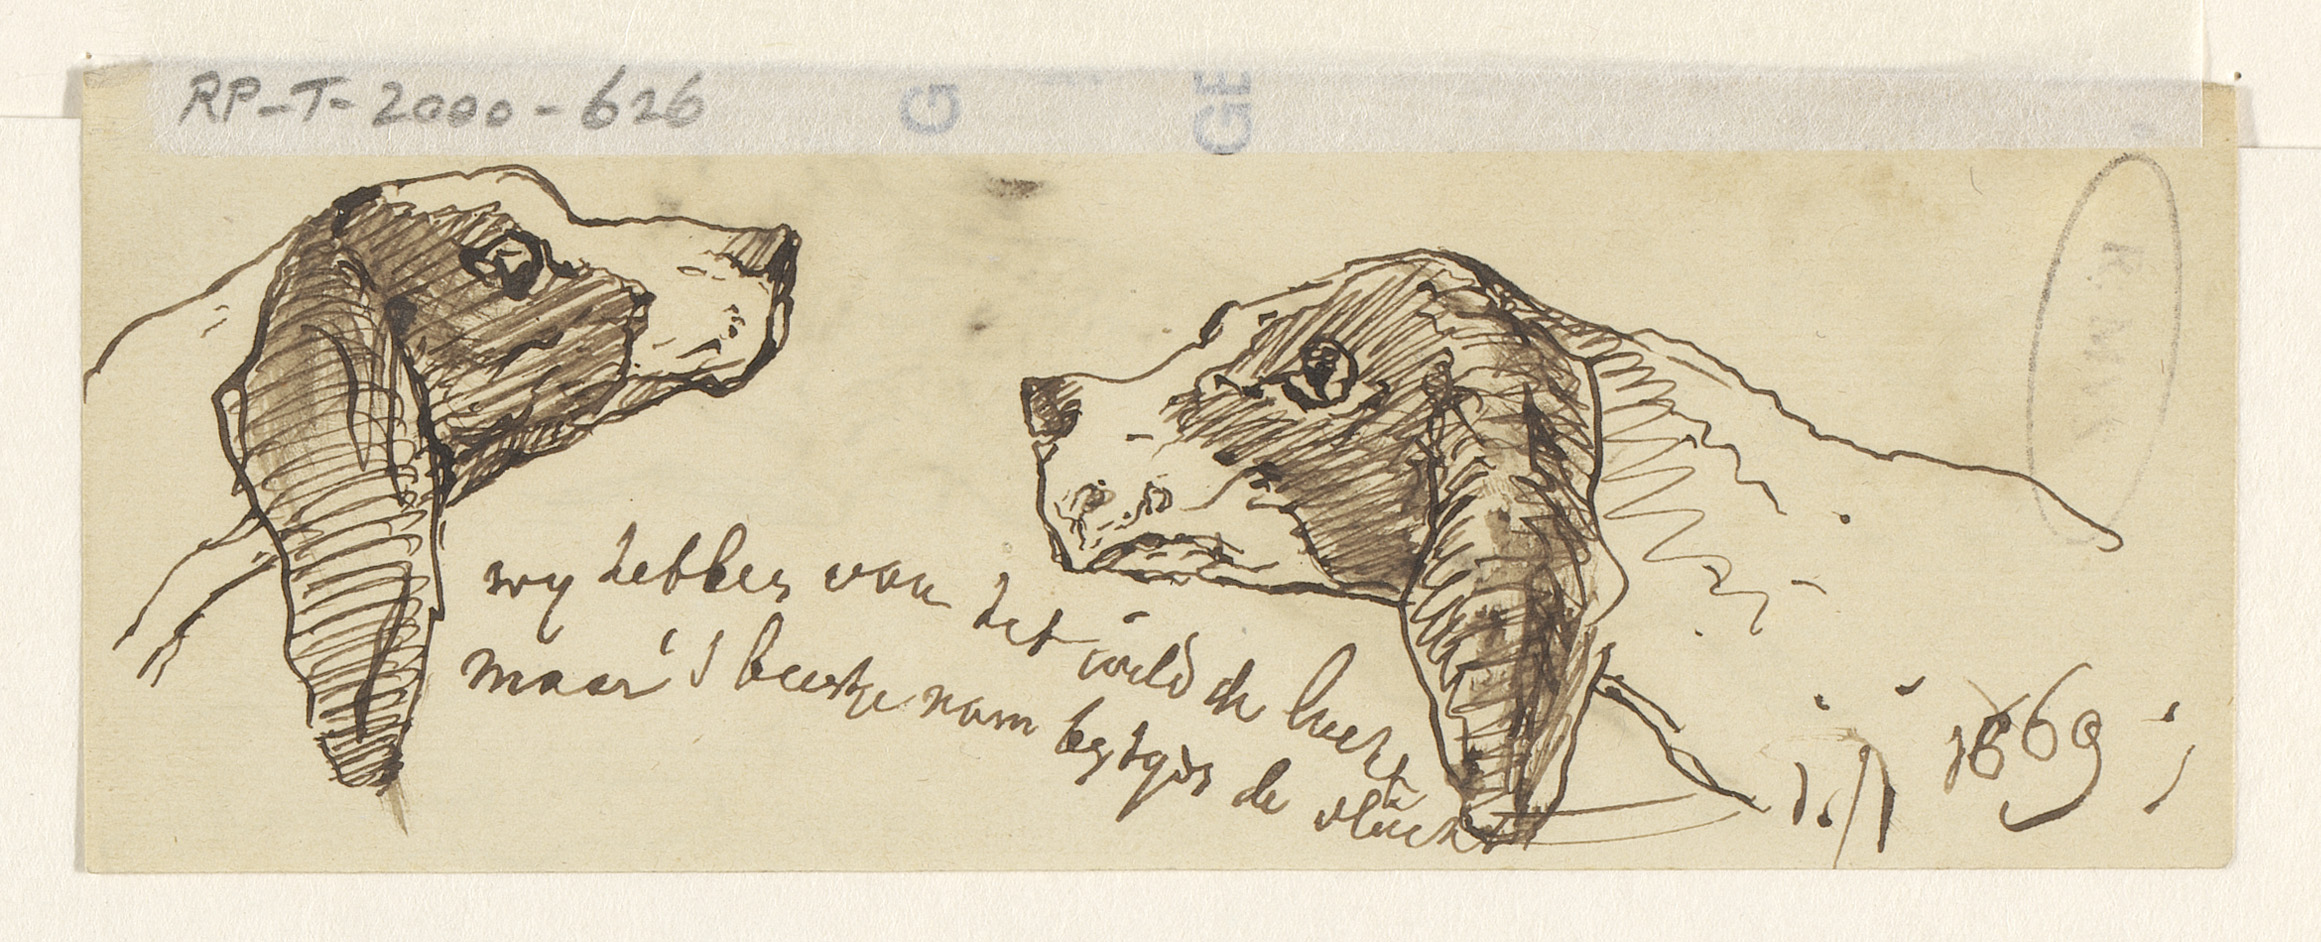 RP-T-2000-626
G
GE
wy hebben van het wild de lucht
maar 't beestje nam bytyds de vlucht
1869